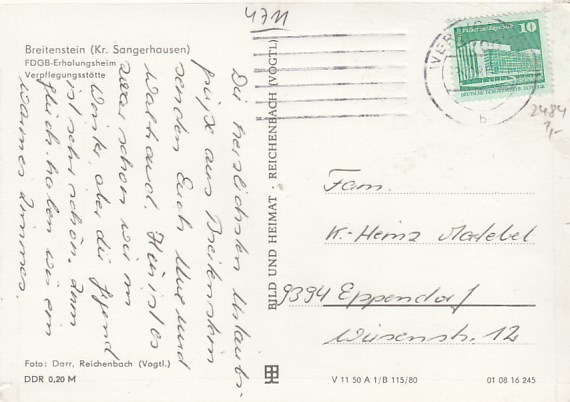 4711
Breitenstein (Kr. Sangerhausen)
FDGB-Erholungsheim
Verpflegungsstätte
Die herzlichsten Urlaubs-
grüße aus Breitenstein
senden Euch Uwe und
Waltraud. Hier ist es
zwar schon wie im
Winter, aber die Gegend
ist sehr schön. Zum
Glück haben wir ein
warmes Zimmer.
Foto: Darr, Reichenbach (Vogtl.)
DDR 0,20 M
BILD UND HEIMAT · REICHENBACH (VOGTL)
V 11 50 A 1/B 115/80
01 08 16 245
10
DEUTSCHE DEMOKRATISCHE REPUBLIK
b
2484
Fam.
K.-Heinz
9394 Eppendorf
Wiesenstr. 12